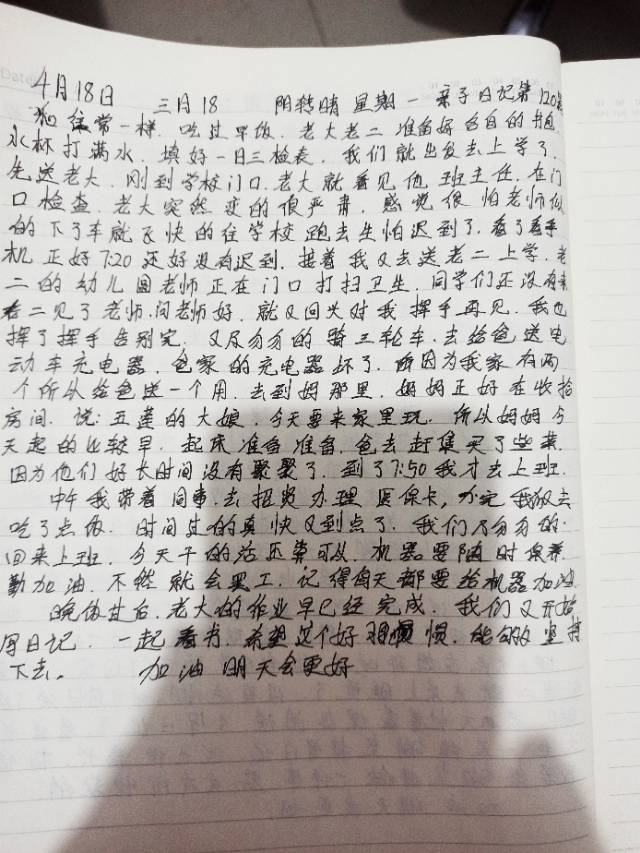 4月18日 三月18 阴转晴 星期一 亲子日记第120篇
和往常一样.吃过早饭.老大老二准备好各自的书包
水杯打满水.填好一日三检表.我们就出发去上学了.
先送老大.刚到学校门口.老大就看见他班主任.在门
口检查.老大突然变的很严肃.感觉很怕老师似
的下了车就飞快的往学校跑去生怕迟到了.看了看手
机正好7:20还好没有迟到.接着我又去送老二上学.老
二的幼儿园老师正在门口打扫卫生.同学们还没有来
老二见了老师.问老师好.就又回头对我挥手再见.我也
挥了挥手告别完.又匆匆的骑三轮车.去给爸送电
动车充电器.爸家的充电器坏了.因为我家有两
个所以给爸送一个用.去到妈那里.妈妈正好在收拾
房间.说:五莲的大娘.今天要来家里玩.所以妈妈今
天起的比较早.起床准备准备.爸去赶集买了些菜.
因为他们好长时间没有聚聚了.到了7:50我才去上班.
中午我带着同事.去招贤办理医保卡,办完我们去
吃了点饭.时间过的真快又到点了.我们又匆匆的
回来上班.今天干的活还算可以.机器要随时保养
勤加油.不然就会罢工.记得每天都要给机器加油.
晚饭过后.老大的作业早已经完成.我们又开始
写日记.一起看书.希望这个好习惯.能够坚持
下去。 加油 明天会更好